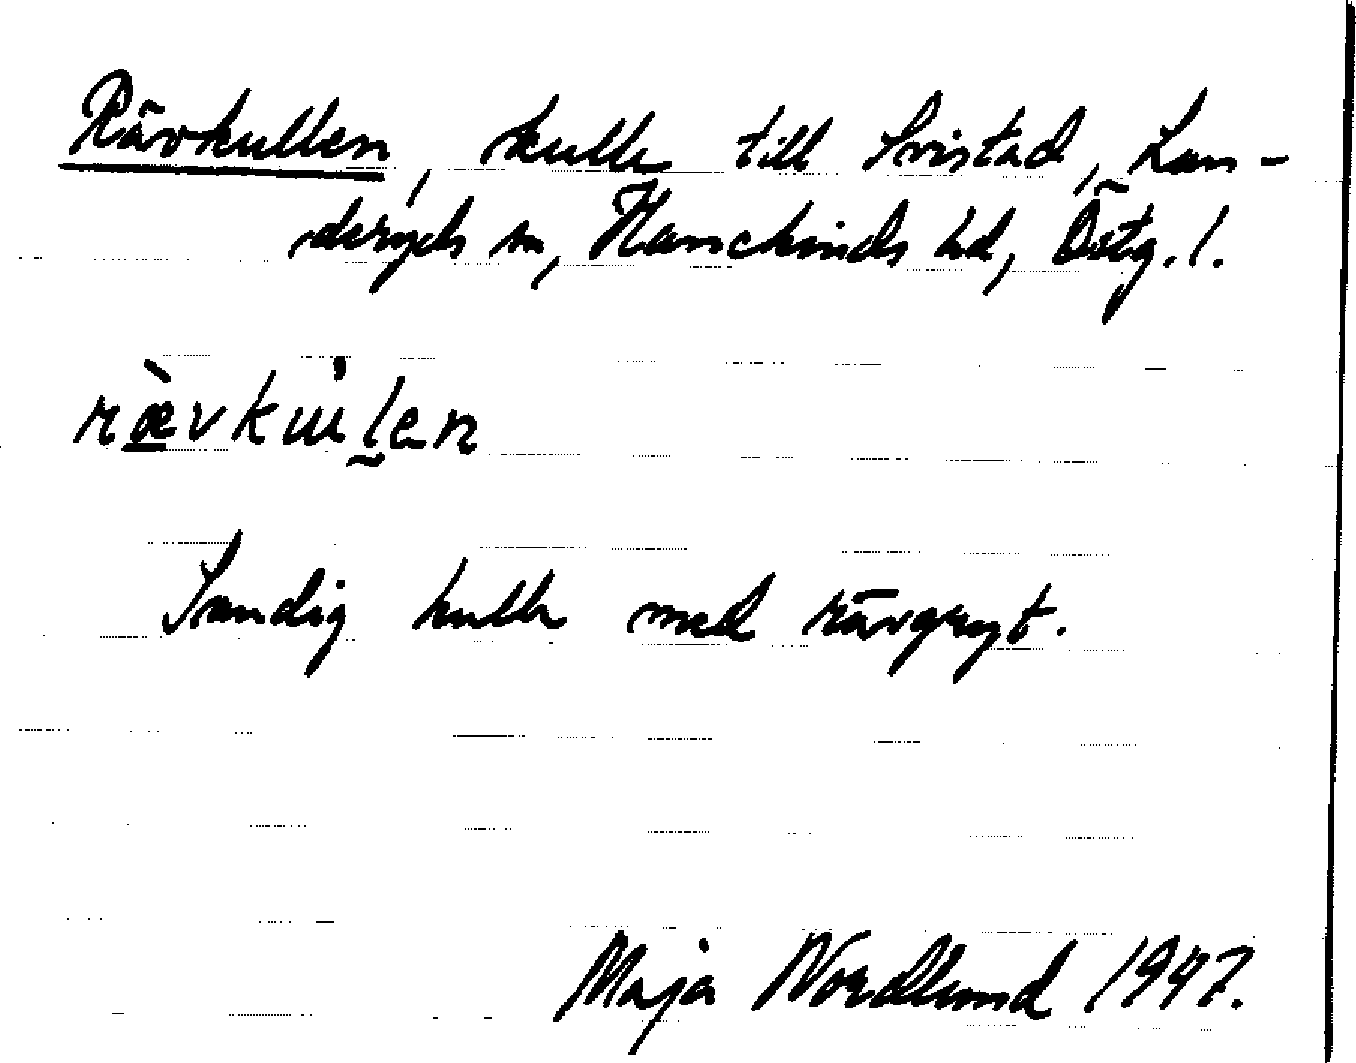 Rävkullen, kulle till Svistad, Lan-
deryds sn, Hanekinds hd, Östg. l.
ræ̀vkɯ̇len
Sandig kulle med rävgryt.
Maja Nordlund 1947.